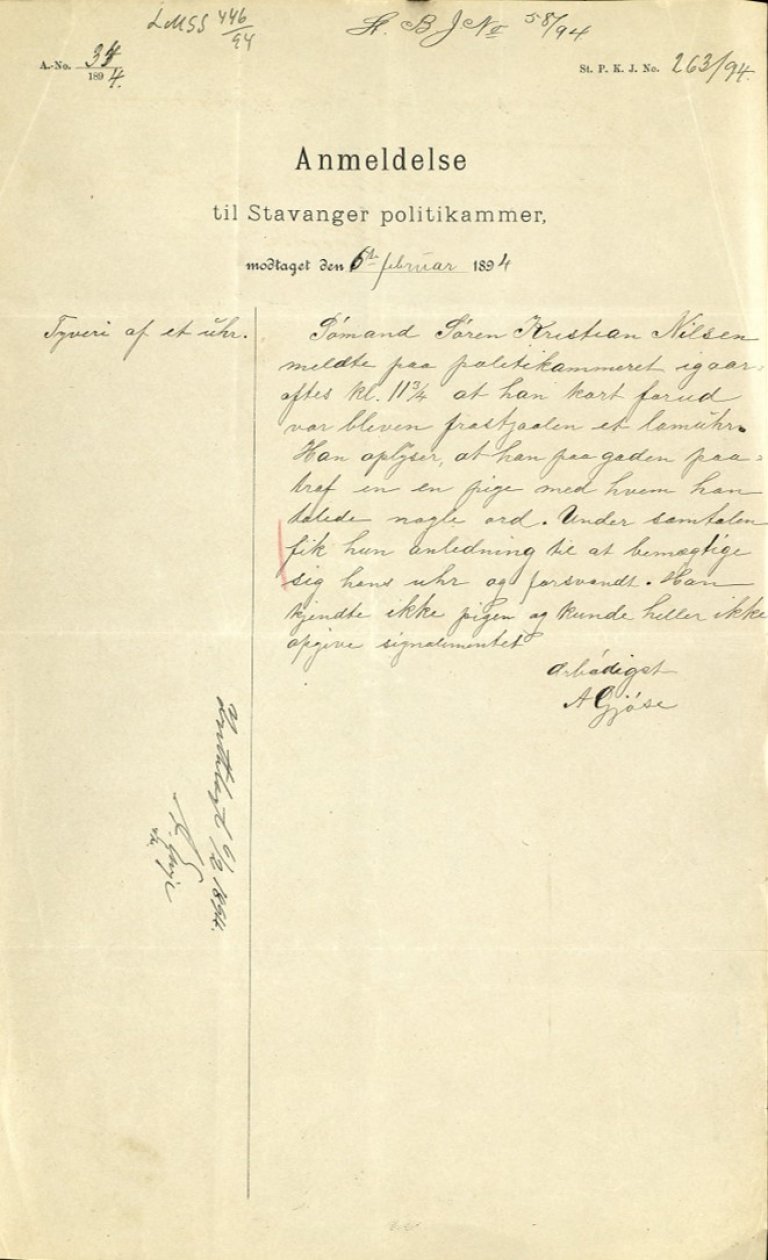 LMSS 446/94
St. B J No 58/94
A.-No. 34
1894.
St. P. K. J. No. 263/94.
Anmeldelse
til Stavanger politikammer,
modtaget den 6te februar 1894
Tyveri af et uhr.
Sömand Sören Kristian Nilsen
meldte paa politikammeret igaar-
aftes kl. 11 3/4 at han kort forud
var bleven frastjaalen et lomuhr.
Han oplyser, at han paa gaden paa-
traf en en pige med hvem han
talede nogle ord. Under samtalen
fik hun anledning til at bemægtige
sig hans uhr og forsvandt. Han
kjendte ikke pigen og kunde heller ikke
opgive signalementet
Ærbödigst
A Gjöse
6/2 1894.